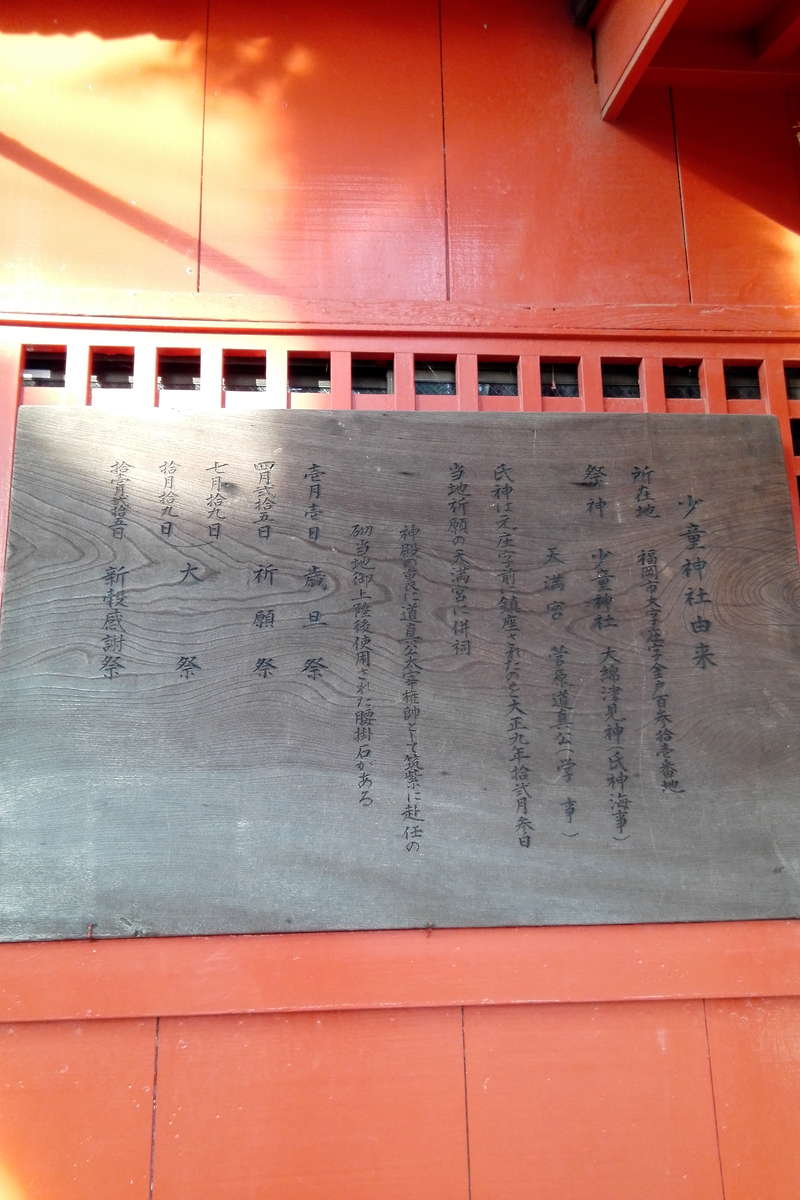 少童神社由来
所在地 福岡市大字座字金戸百参拾壱番地
祭神 少童神社 大綿津見神(氏神海事)
天満宮 菅原道真公(学事)
氏神は元庄字前に鎮座されたのを大正九年拾弐月参日
当地祈願の天満宮に併祠
神殿の裏に道真公太宰権帥として筑紫に赴任の
砌当地御上陸後使用された腰掛石がある
壱月壱日 歳旦祭
四月弐拾五日 祈願祭
七月拾九日
拾月拾九日 大祭
拾壱月弐拾五日 新穀感謝祭